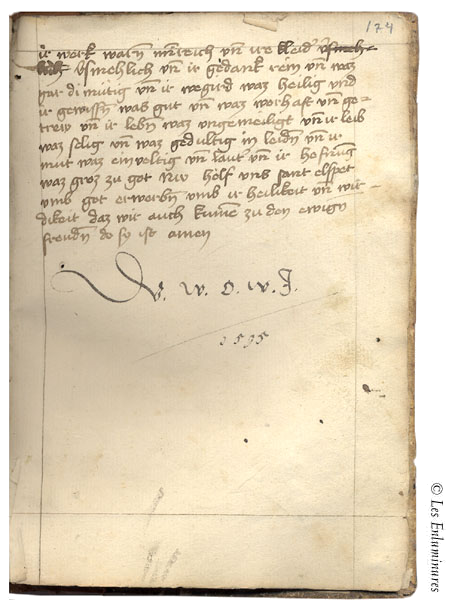 174
ir werk warn minreich vn̄ ire kleid v̈smeh-
lich v̈smehlich vn̄ ir gedank rein vn̄ waz
gar dimütig vn̄ ir wegird waz heilig vnd
ir gewissn̄ was gut vn̄ waz worhaft vn̄ ge-
trew vn̄ ir lebn̄ waz vngemeiligt vn̄ ir leib
waz selig vn̄ waz gedultig in leidn̄ vn̄ ir
mut waz einveltig vn̄ laut vn̄ ir hofnūg
waz groz zu got Nw hölf vns sant elspet
vmb got erwerbn̄ vmb ir heilikeit vn̄ wir-
dikeit daz wir auch kumē zu den ewign̄
frewdn̄ do so ist amen
W. W. O. W. J.
1595
© Les Enluminures